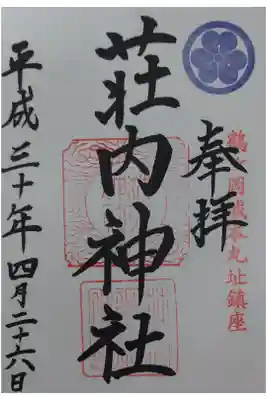 鶴ヶ岡城本丸址鎮座
奉拝
荘内神社
平成三十年四月二十六日